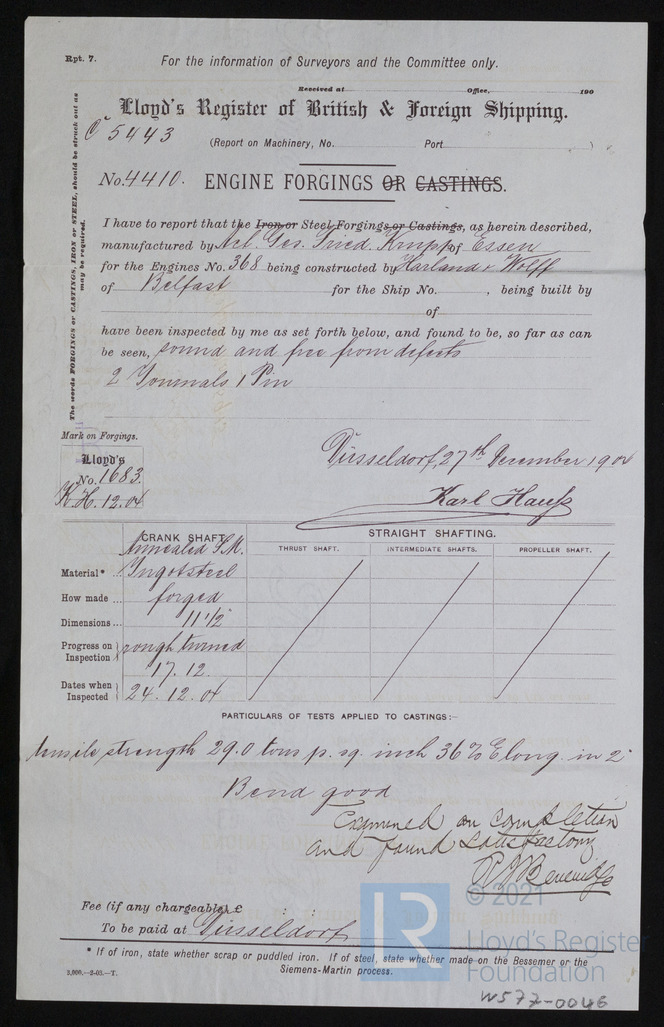 Rpt. 7.
For the information of Surveyors and the Committee only.
Received at Office, 190
Lloyd's Register of British & Foreign Shipping.
C 5443
(Report on Machinery, No. Port )
No. 4410. ENGINE FORGINGS OR CASTINGS.
The words FORGINGS or CASTINGS, IRON or STEEL, should be struck out as
may be required.
I have to report that the Iron or Steel Forgings or Castings, as herein described,
manufactured by Act. Ges. Fried. Krupp of Essen
for the Engines No. 368 being constructed by Harland & Wolff
of Belfast for the Ship No. , being built by
of
have been inspected by me as set forth below, and found to be, so far as can
be seen, sound and free from defects
2 Journals 1 Pin
Mark on Forgings.
Lloyd's
No. 1683.
K.H. 12.04
Düsseldorf, 27th December 1904
Karl Hauß
CRANK SHAFT STRAIGHT SHAFTING.
THRUST SHAFT. INTERMEDIATE SHAFTS. PROPELLER SHAFT.
Annealed S.M.
Material* Ingotsteel
How made ... forged
Dimensions ... 11 1/2"
Progress on Inspection rough turned
17. 12.
Dates when Inspected 24. 12. 04
PARTICULARS OF TESTS APPLIED TO CASTINGS:—
tensile strength 29.0 tons p. sq. inch 36% Elong. in 2"
Bend good
Examined on completion
and found satisfactory
Fee (if any chargeable) £ : :
To be paid at Düsseldorf
* If of iron, state whether scrap or puddled iron. If of steel, state whether made on the Bessemer or the
Siemens-Martin process.
2,000.—2-03.—T.
© 2021
LR
Lloyd's Register
Foundation
W577-0046